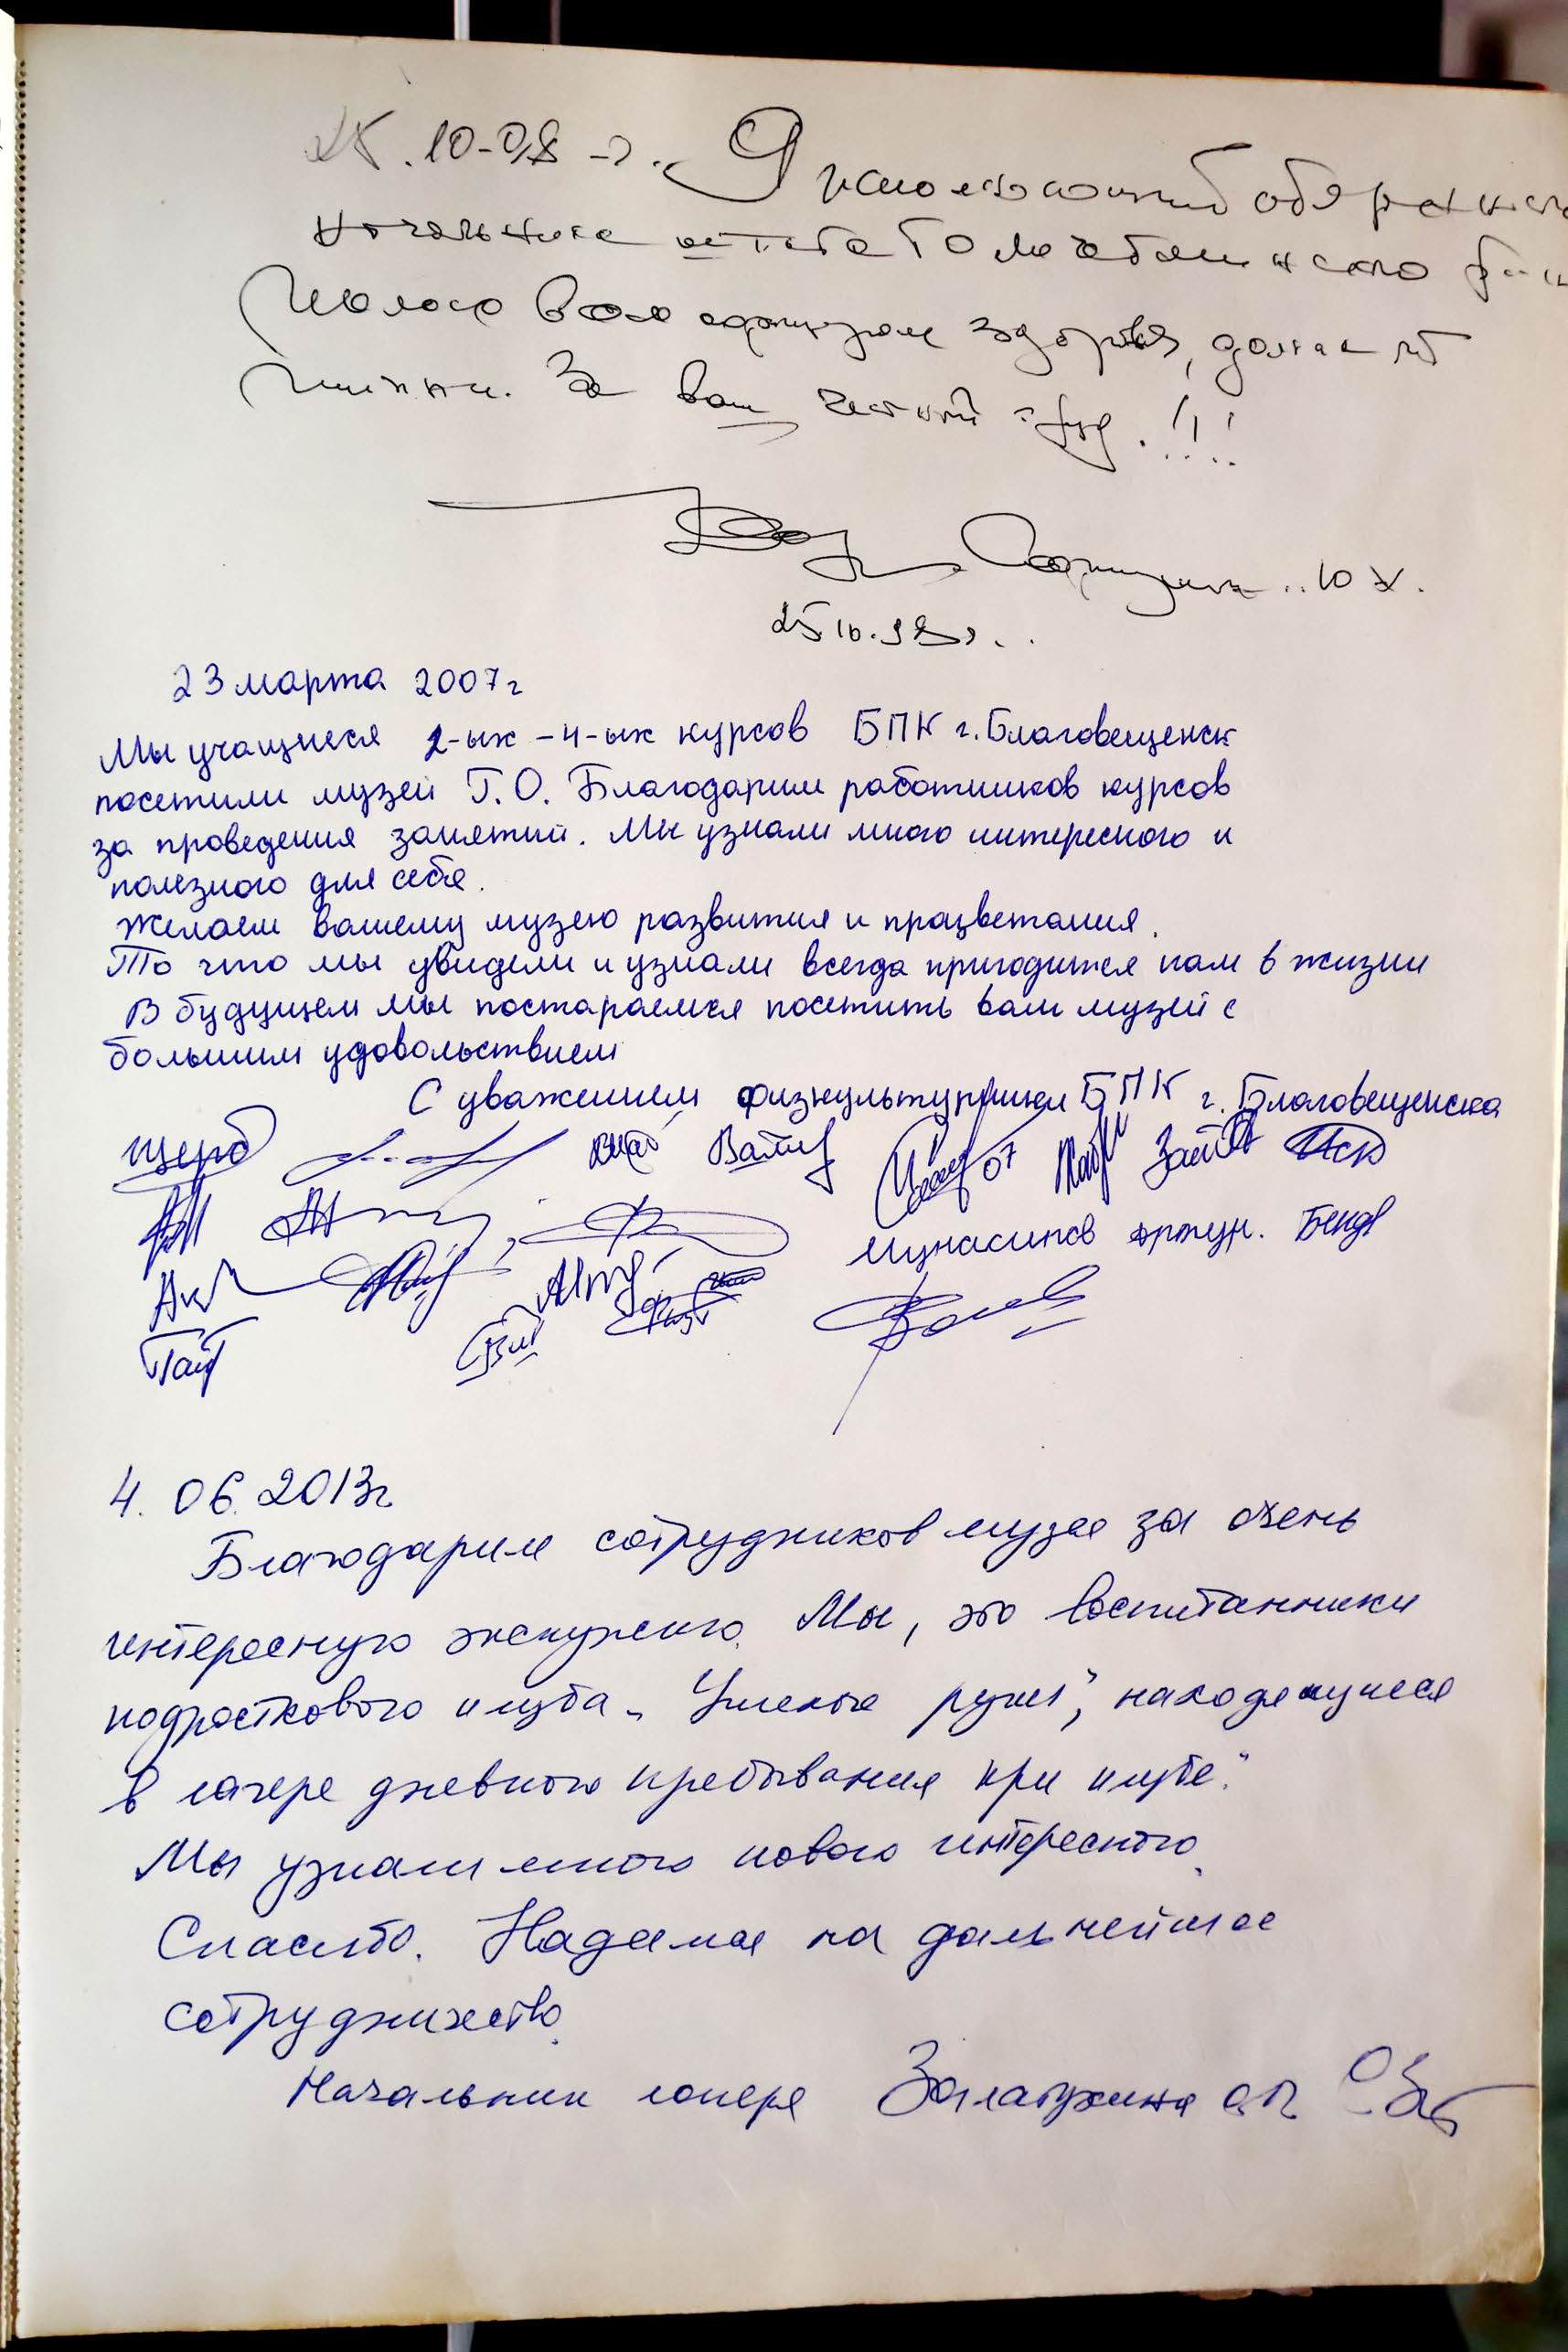 25.10-98 г. Я исполняющий обязанност
начальника штаба ГО
Желаю Вам здоровья, долгие лет
жизни. За ваш честный труд.!!!
Ю Х.
25.10.98 г.
23 марта 2007 г
Мы учащиеся 2-ых – 4-ых курсов БПК г. Благовещенск
посетили музей Г.О. Благодарим работников курсов
за проведения занятий. Мы узнали много интересного и
полезного для себя.
Желаем вашему музею развития и працветания.
То что мы увидели и узнали всегда пригодится нам в жизни
В будущем мы постараемся посетить ваш музей с
большим удовольствием
С уважением физкультурники БПК г. Благовещенска
Щерб
Мунасипов Артур.
4. 06. 2013г.
Благодарим сотрудников музея за очень
интересную экскурсию. Мы, это воспитанники
подросткового клуба „Умелые руки", находящиеся
в лагере дневного пребывания при клубе."
Мы узнали много нового интересного.
Спасибо. Надеемся на дальнейшее
сотрудничество.
Начальник лагеря О.П.